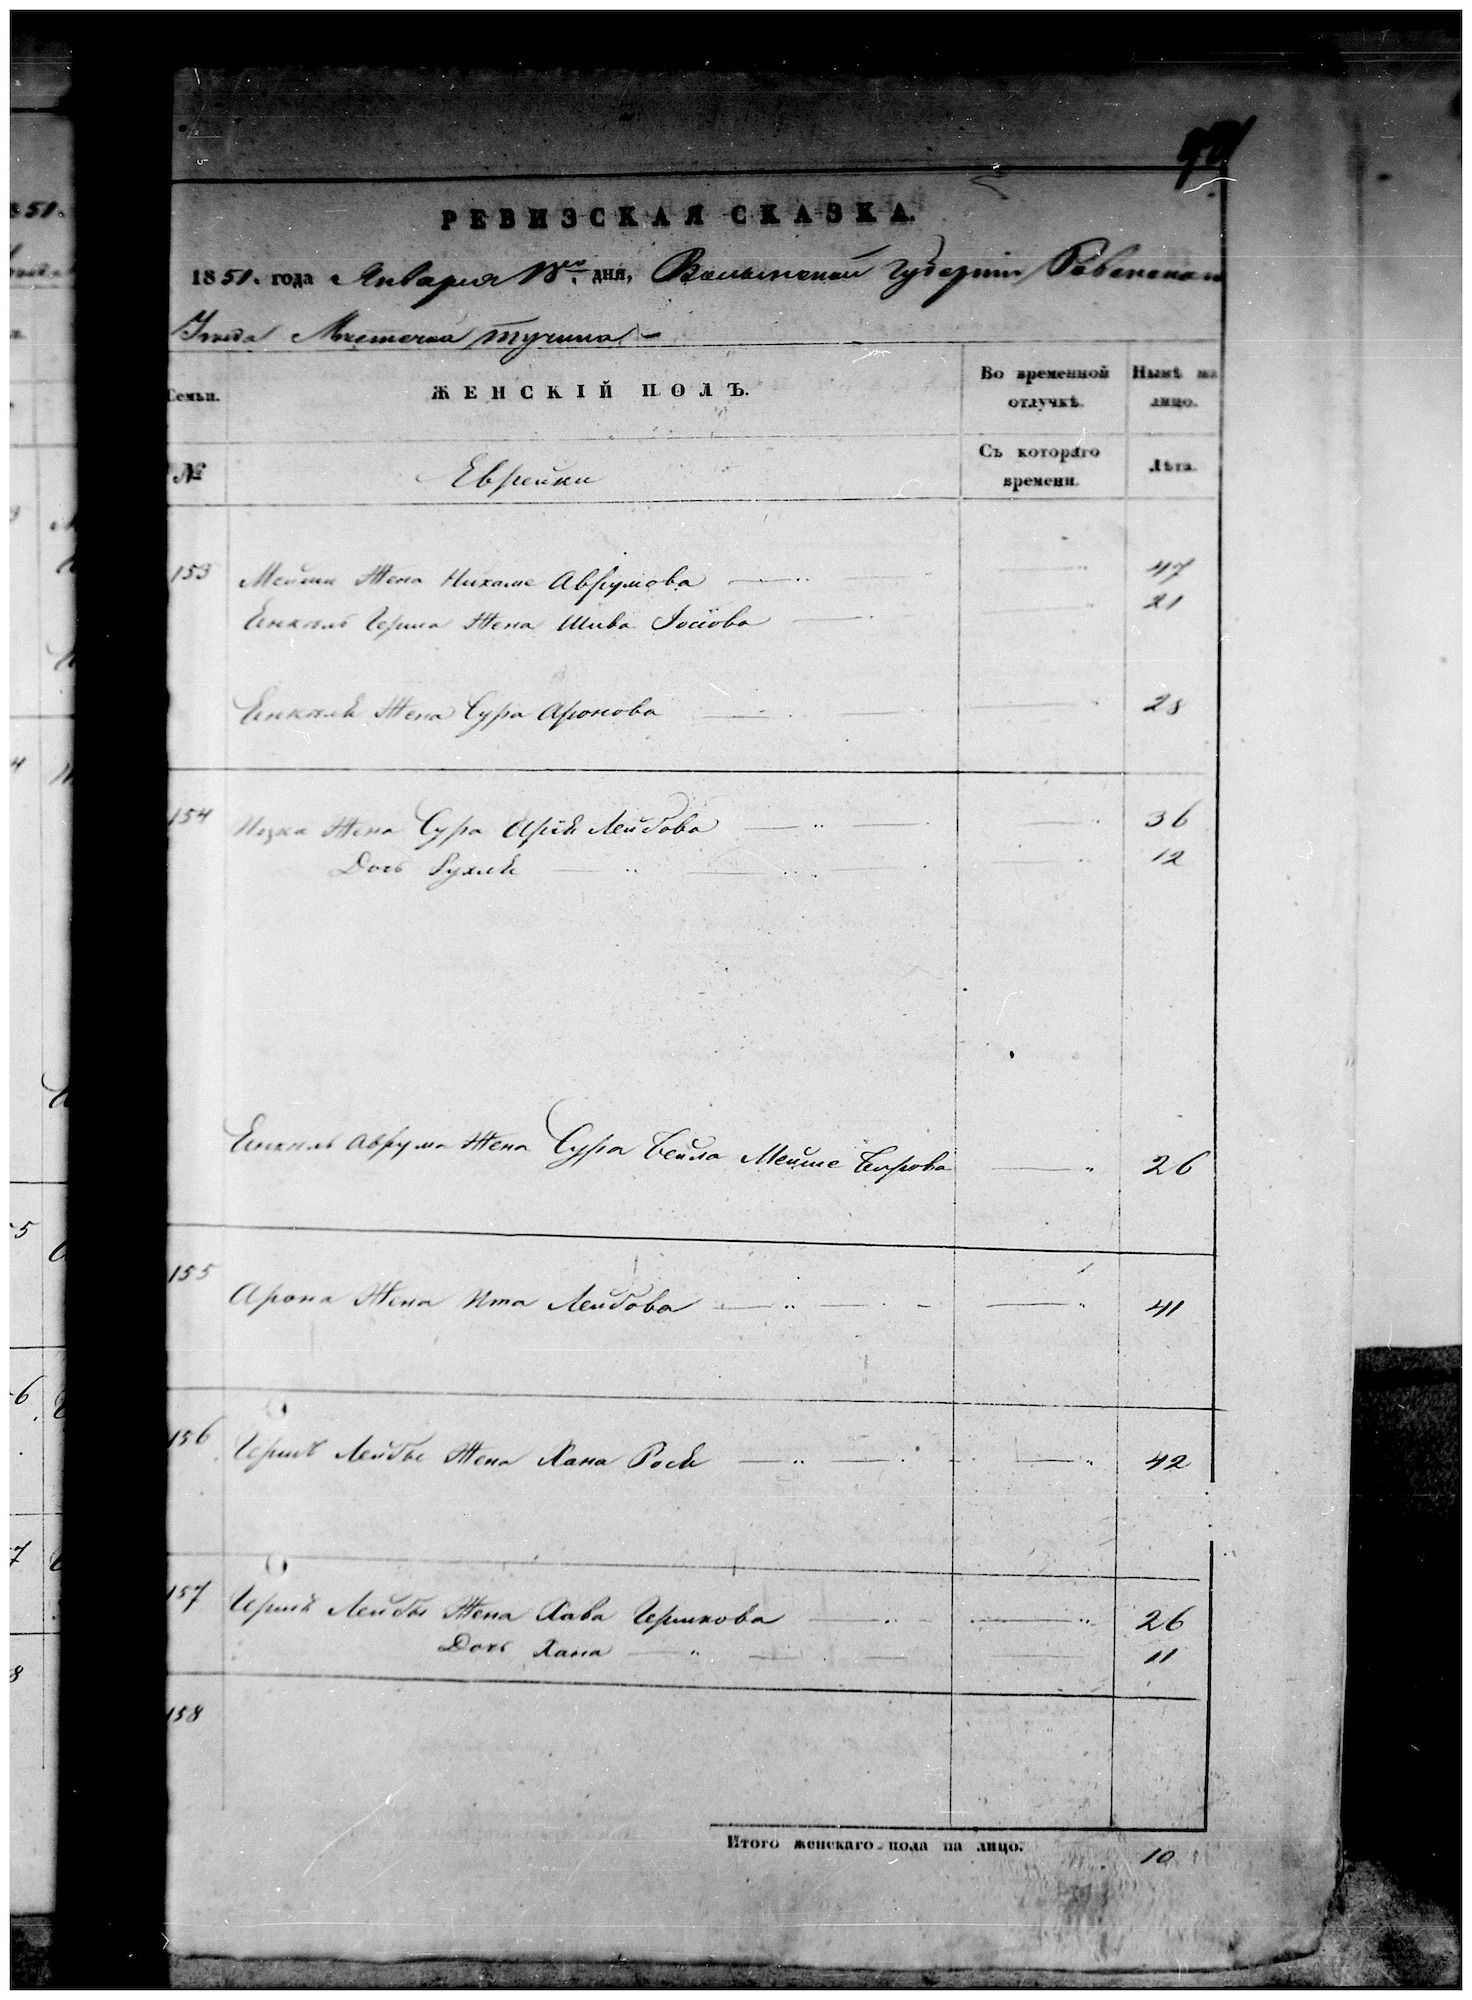 РЕВИЗСКАЯ СКАЗКА.
1851. года Января дня, Волынской Губерніи Ровенскаго
Уѣзда Мѣстечка Тучина
Семьи.
ЖЕНСКІЙ ПОЛЪ.
Во временной отлучкѣ.
Нынѣ на лицо.
№
Еврейки
Съ котораго времени.
Лѣта.
153 Мейши Жена Нихаме Аврумова 47
Еинкель Герша Жена Шива Іосіова 21
Еинкеля Жена Сура Аронова 28
154 Ицка Жена Сура Аріи Лейбова 36
Дочь Рухля 12
Еинкель Аврума Жена Сура Бейла Мейше Берова 26
155 Арона Жена Ита Лейбова 41
156 Гершъ Лейбы Жена Хана Рося 42
157 Гершъ Лейбы Жена Хава Гершкова 26
Дочь Хана 11
158
Итого женскаго пола на лицо. 10
51.
4
5
6
7
8